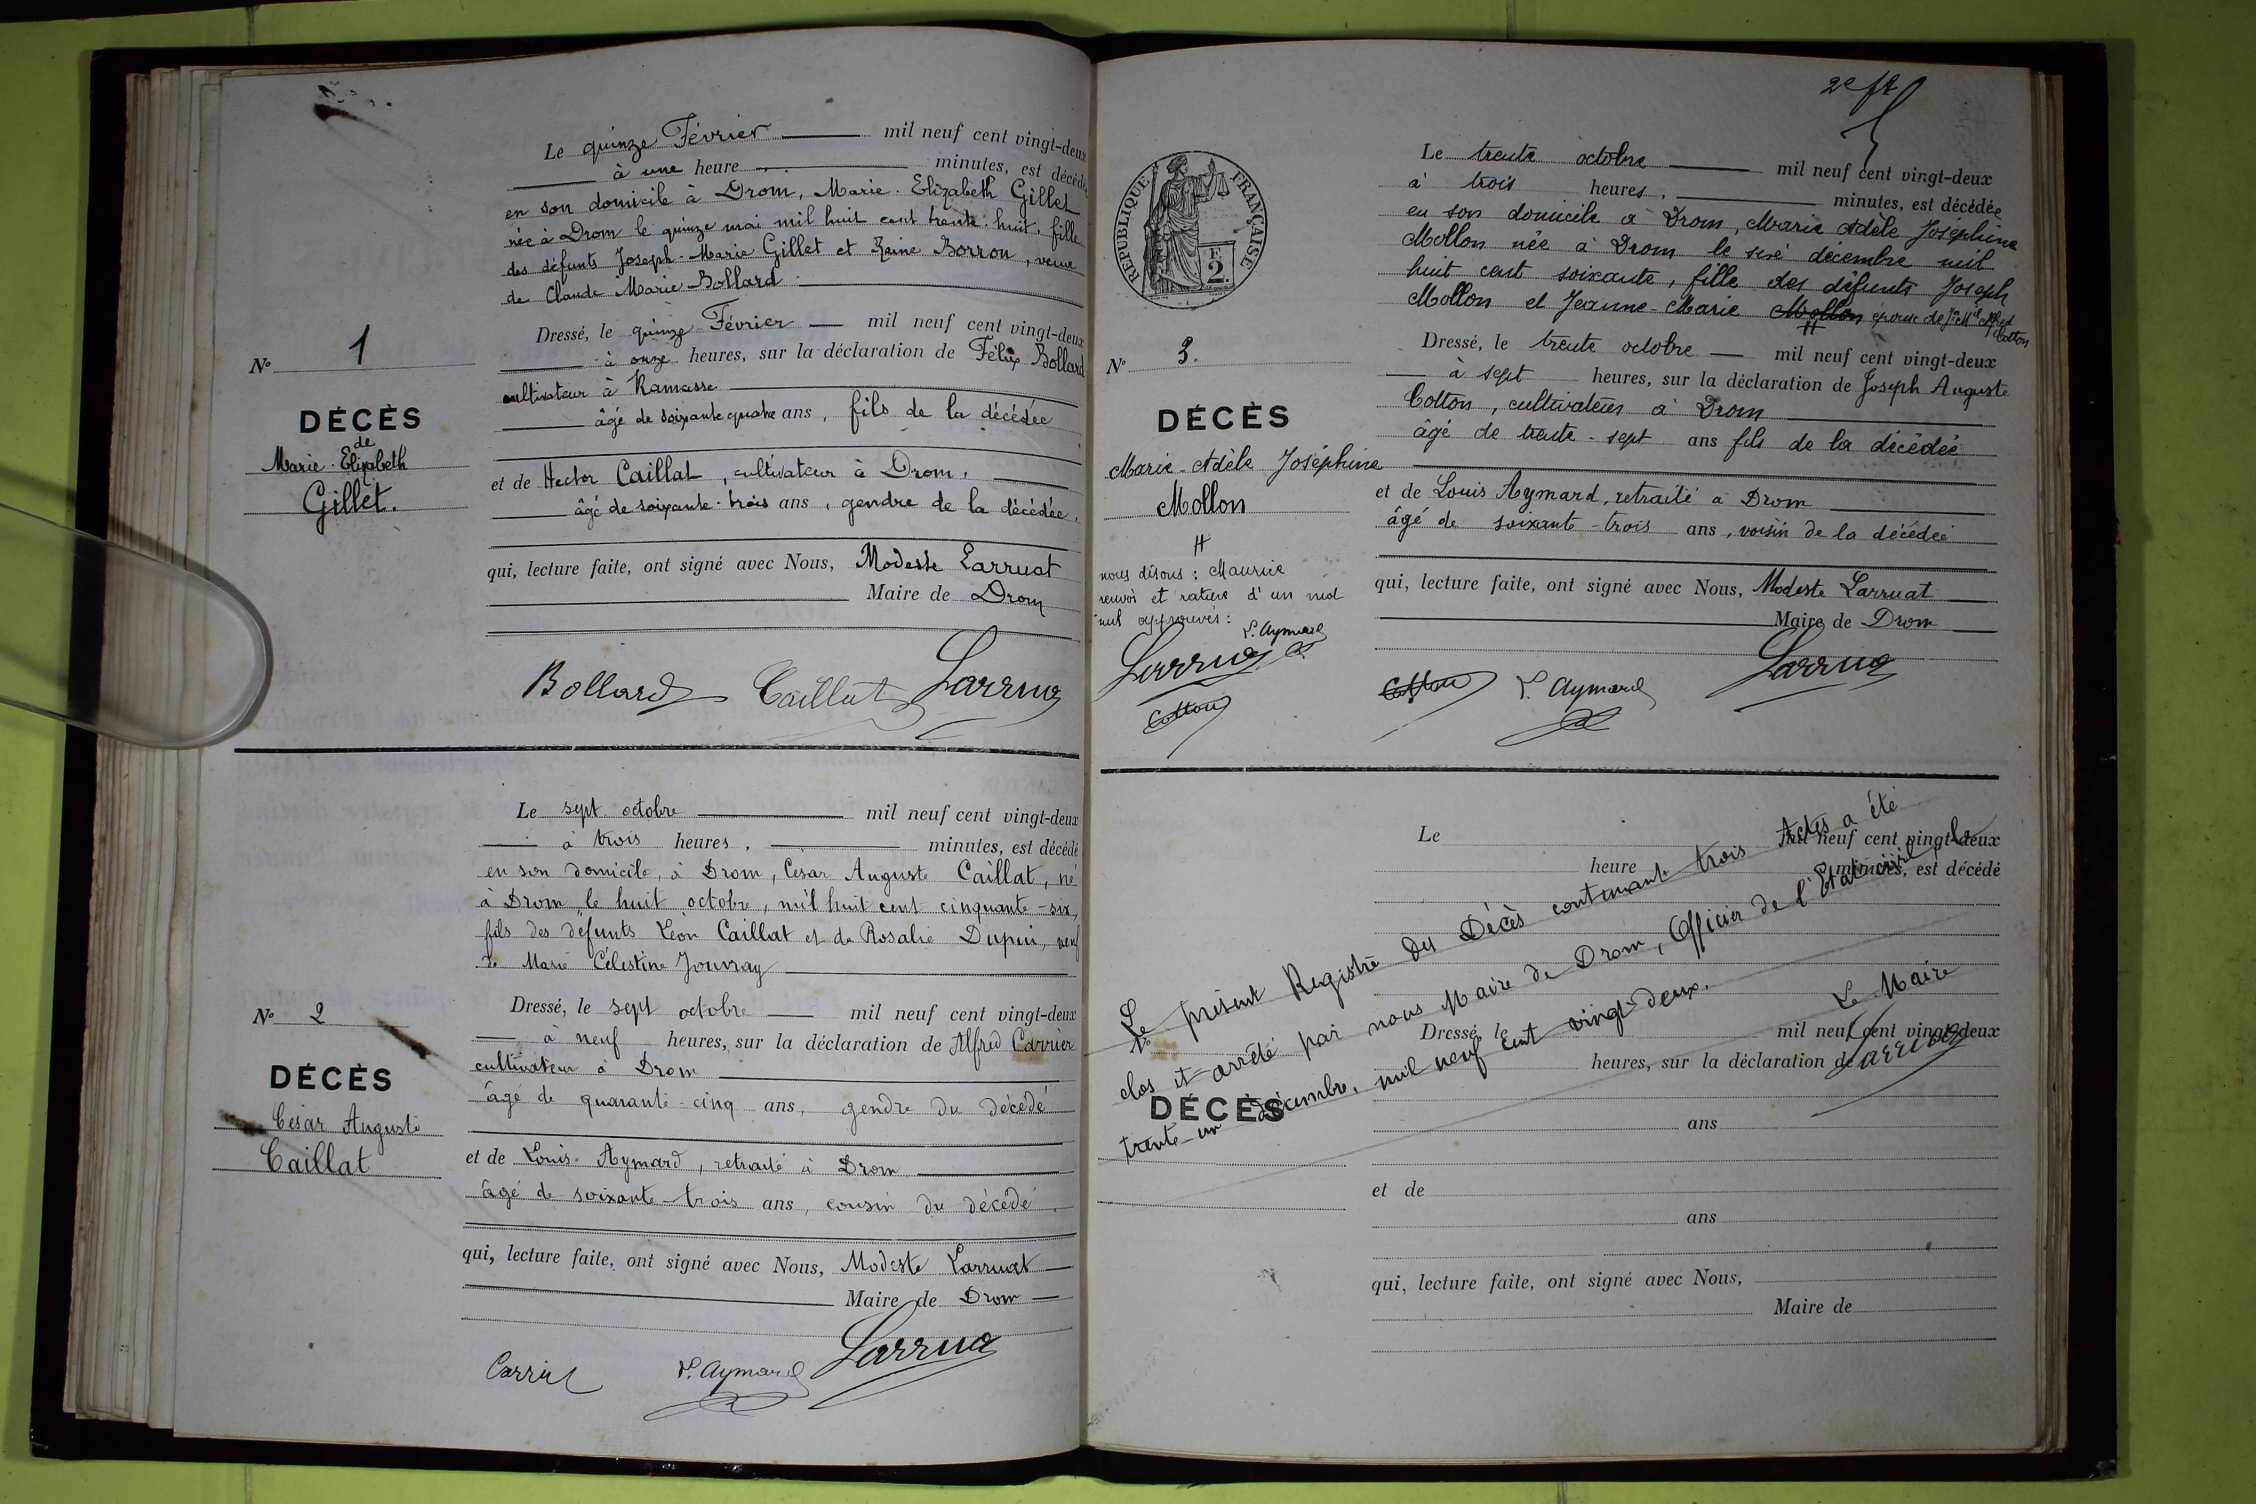 Le quinze Février mil neuf cent vingt-deux
à une heure minutes, est décédée
en son domicile à Drom, Marie-Elizabeth Gillet
née à Drom le quinze mai mil huit cent trente-huit, fille
des défunts Joseph-Marie Gillet et Reine Borron, veuve
de Claude Marie Bollard
Dressé, le quinze Février mil neuf cent vingt-deux
à onze heures, sur la déclaration de Félix Bollard
cultivateur à Ramasse
âgé de soixante quatre ans, fils de la décédée
et de Hector Caillat, cultivateur à Drom,
âgé de soixante-trois ans, gendre de la décédée,
qui, lecture faite, ont signé avec Nous, Modeste Larruat
Maire de Drom
Bollard Caillat Larrua
No 1
DÉCÈS
de
Marie-Elizabeth
Gillet.
Le sept octobre mil neuf cent vingt-deux
à trois heures, minutes, est décédé
en son domicile, à Drom, César Auguste Caillat, né
à Drom, le huit octobre, mil huit cent cinquante-six,
fils des défunts Léon Caillat et de Rosalie Dupin, veuf
de Marie Célestine Jouvray
Dressé, le sept octobre mil neuf cent vingt-deux
à neuf heures, sur la déclaration de Alfred Carrier
cultivateur à Drom
âgé de quarante-cinq ans, gendre du décédé
et de Louis Aymard, retraité à Drom
âgé de soixante-trois ans, cousin du décédé.
qui, lecture faite, ont signé avec Nous, Modeste Larruat
Maire de Drom
Carrier L. Aymard Larrua
No 2
DÉCÈS
César Auguste
Caillat
2e ft
RÉPUBLIQUE FRANÇAISE
F.
2.
Le trente octobre mil neuf cent vingt-deux
à trois heures, minutes, est décédée
en son domicile à Drom, Marie Adèle Joséphine
Mollon née à Drom le seize décembre mil
huit cent soixante, fille des défunts Joseph
Mollon et Jeanne-Marie Mollon épouse de Jh Mie Alfred
H Cotton
Dressé, le trente octobre mil neuf cent vingt-deux
à sept heures, sur la déclaration de Joseph Auguste
Cotton, cultivateur à Drom
âgé de trente-sept ans fils de la décédée
et de Louis Aymard, retraité à Drom
âgé de soixante-trois ans, voisin de la décédée
qui, lecture faite, ont signé avec Nous, Modeste Larruat
Maire de Drom
Cotton L. Aymard Larrua
No 3.
DÉCÈS
Marie-Adèle Joséphine
Mollon
H
nous disons : Maurice
renvoi et rature d'un mot
nul approuvés :
L. Aymard
Larrua
Cotton
Le mil neuf cent vingt-deux
heure minutes, est décédé
No
DÉCÈS
Dressé, le mil neuf cent vingt-deux
heures, sur la déclaration de
ans
et de
ans
qui, lecture faite, ont signé avec Nous,
Maire de
Le présent Registre des Décès contenant trois Actes a été
clos et arrêté par nous Maire de Drom, Officier de l'Etat-civil, le
trente-un décembre, mil neuf cent vingt-deux.
Le Maire
Larrua